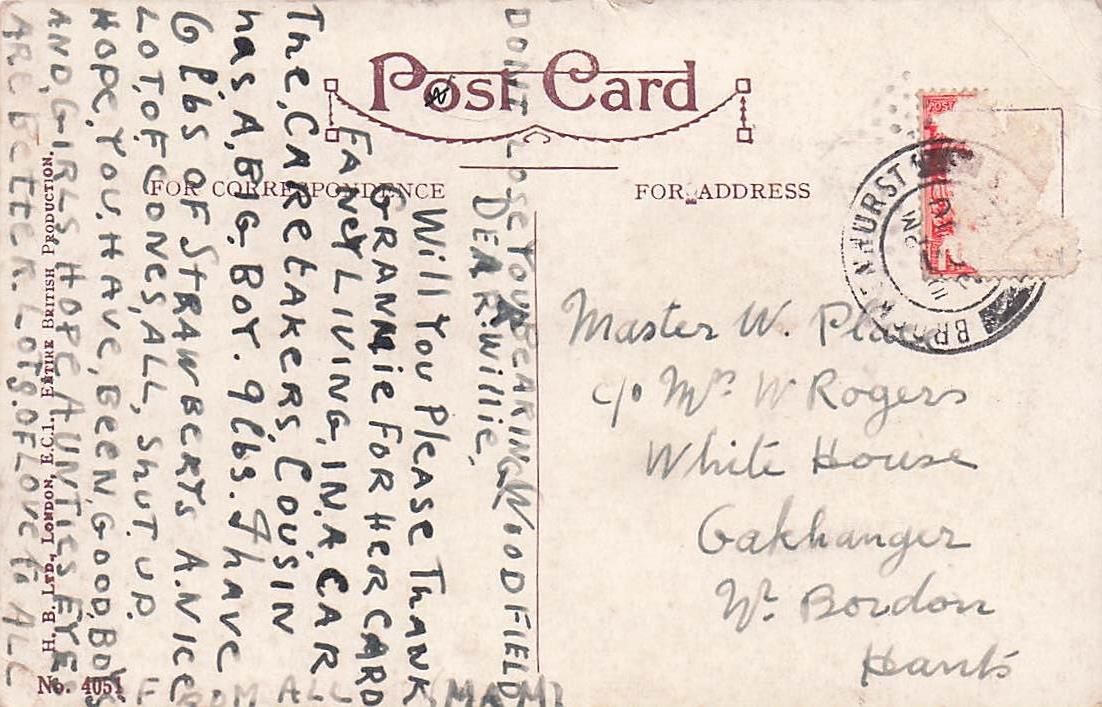 Post Card
FOR CORRESPONDENCE
FOR ADDRESS
DONT LOSE YOUR BEARING WOODFIELD
DEAR. WILLIE,
Will YOU PLEASE THANK
GRANNIE FOR HER CARD
FANCY LIVING, IN, A, CAR
The, CARETAKERS, COUSIN
has A, BIG, BOY. 9lbs. I have
6 lbs OF STRAWBERYS A. NICE
LOT, OF, CONES, ALL, ShUT. UP.
HOPE, YOU, HAVE, BEEN, GOOD, BOYS
AND, GIRLS, HOPE AUNTIES EYES
ARE BETTER. LOTS. OF LOVE TO ALL
FROM ALL (MAM)
Master W.
c/o Mrs W Rogers
White House
Oakhanger
Nr. Bordon
Hants
BROCKENHURST
POST
H. B. LTD., LONDON, E.C.1. ENTIRE BRITISH PRODUCTION.
No. 4051